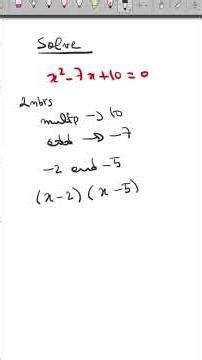 Solve
x² - 7x + 10 = 0
2 nbrs
multp → 10
add → -7
-2 and -5
(x - 2) (x - 5)